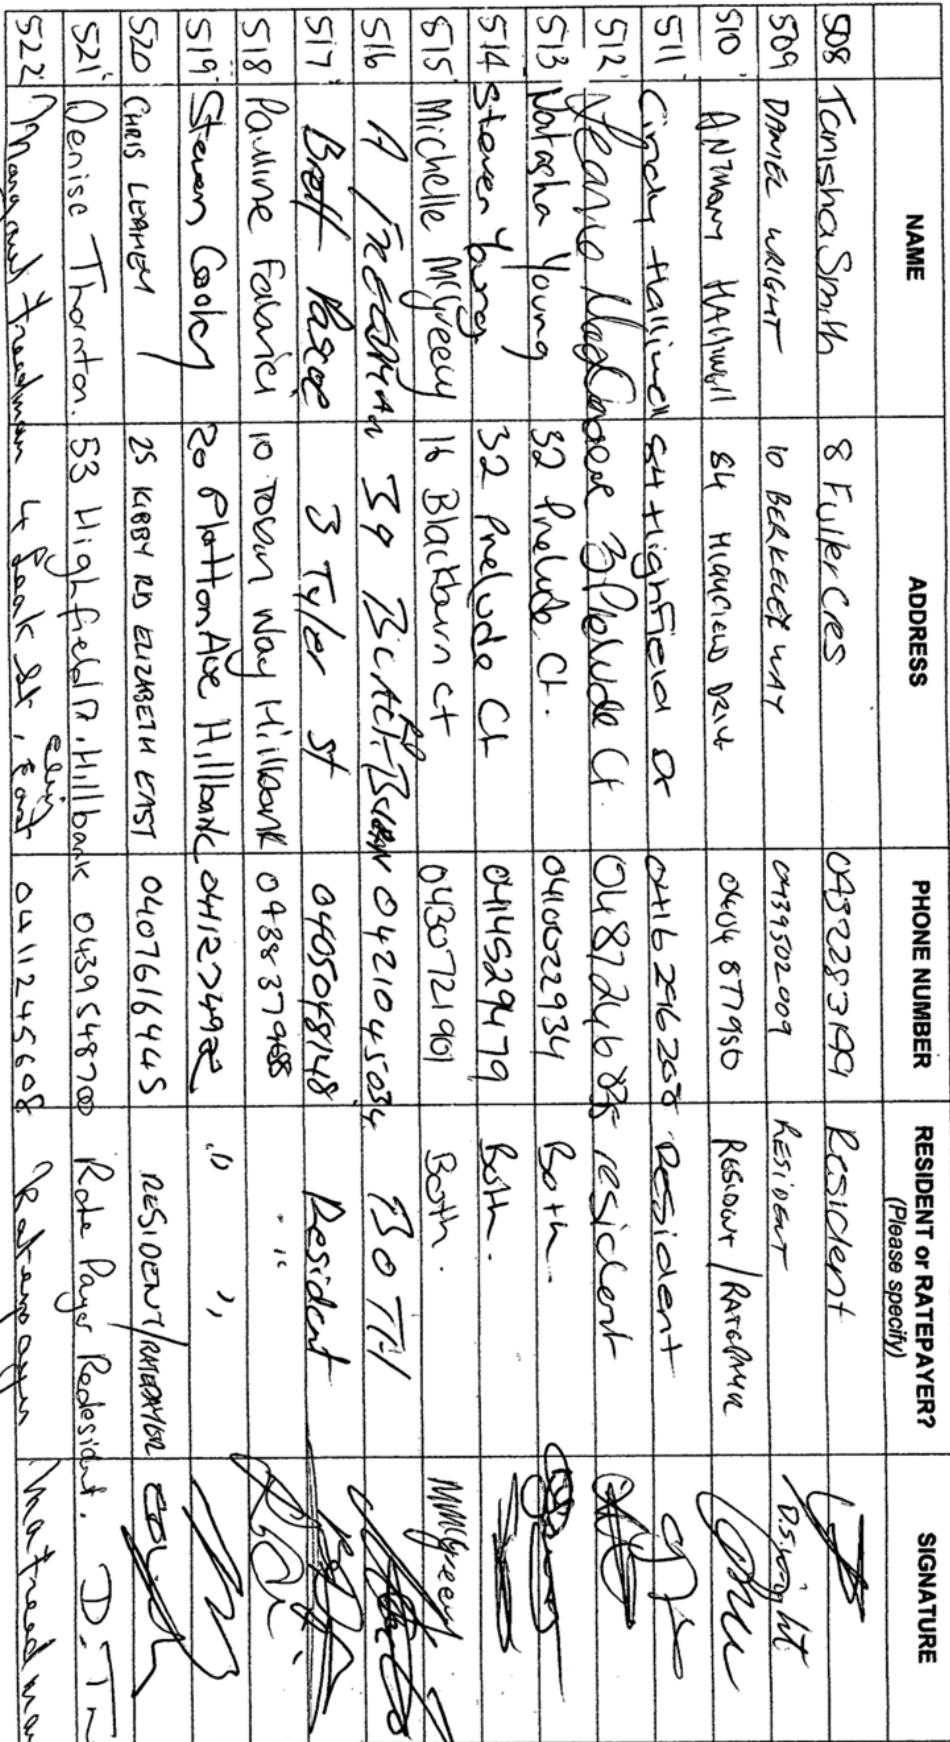 NAME ADDRESS PHONE NUMBER RESIDENT or RATEPAYER? (Please specify) SIGNATURE
508 Tanisha Smith 8 Fuller Cres 0432283199 Resident
509 DANIEL WRIGHT 10 BERKELEY WAY 0439502009 RESIDENT D.S.Wright
510 ANTHONY HALLIWELL 84 HIGHFIELD DRIVE 0404 877950 RESIDENT / RATEPAYER
511 Cindy Halliwell 84 Highfield Dr 0416296208 Resident
512 3 Prelude Ct. 0487246 resident
513 Natasha Young 32 Prelude Ct. 0410022934 Both
514 Steven Young 32 Prelude Ct 0414529479 Both.
515 Michelle McGreevy 16 Blackburn Ct 0430721901 Both. MMcGreevy
516 A 39 0421045034 BOTH
517 Brett Pascoe 3 Tyler St 0405048148 Resident
518 Pauline 10 Way Hillbank "
519 Steven Cooley 20 Platton Ave Hillbank " "
520 CHRIS 25 KIRBY RD ELIZABETH EAST 0407616445 RESIDENT/RATEPAYER
521 Denise Thornton. 53 Highfield D. Hillbank 0439548700 Rate Payer Redesident. D.T
522 Margaret Freedman 4 St, Eliz East 0411245608 Ratepayer